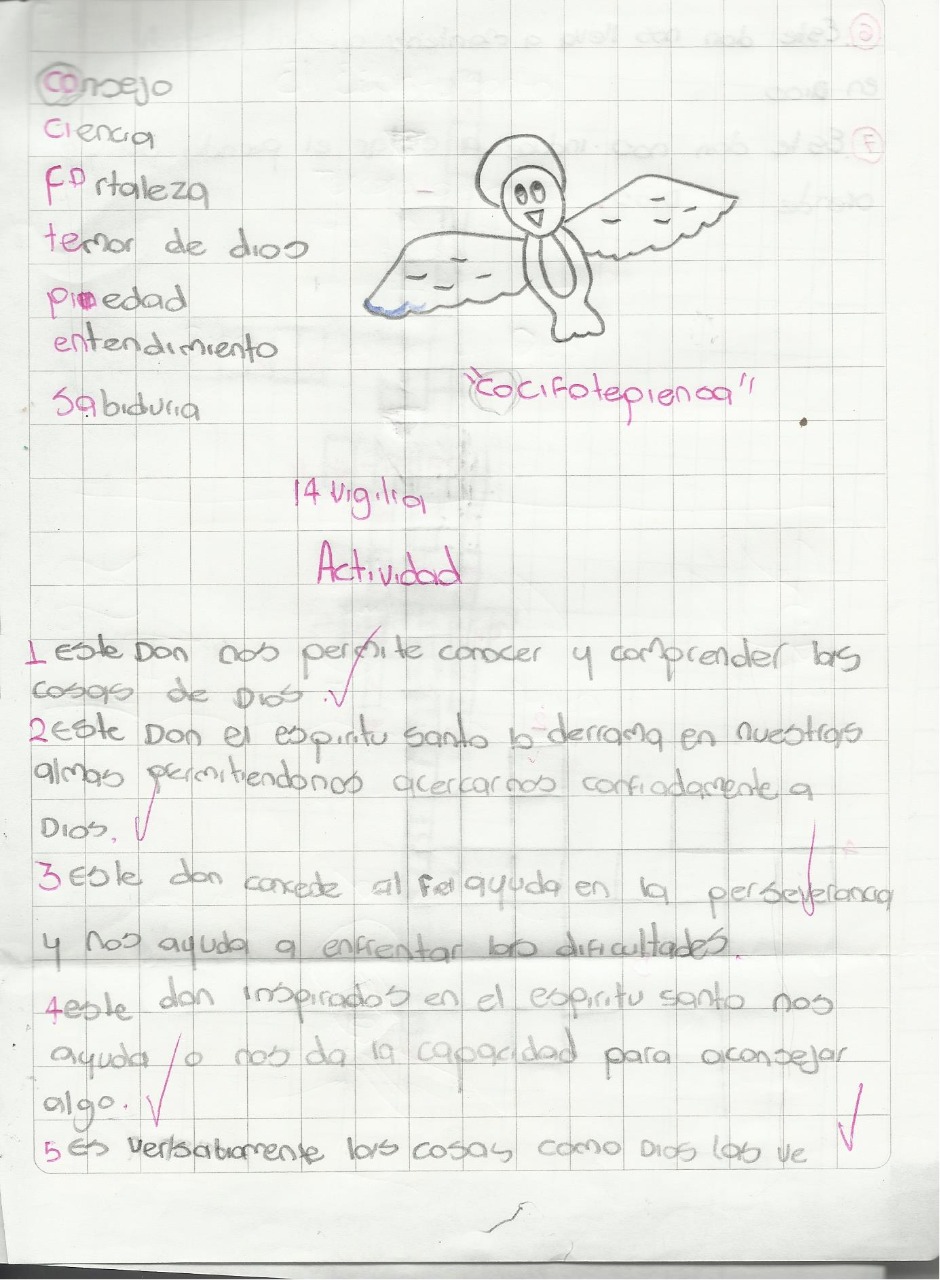 Consejo
Ciencia
Fortaleza
temor de dios
piedad
entendimiento
Sabiduria
"cocifotepiensa"
14 vigilia
Actividad
1 este Don nos permite conocer y comprender las
cosas de Dios.
2 este Don el espiritu santo lo derrama en nuestras
almas permitiendonos acercarnos confiadamente a
Dios.
3 este don concede al fiel ayuda en la perseverancia
y nos ayuda a enfrentar las dificultades.
4 este don inspirados en el espiritu santo nos
ayuda o nos da la capacidad para aconsejar
algo.
5 es las cosas como Dios las ve
6 Este don nos lleva a
en Dios
7 Este don nos el